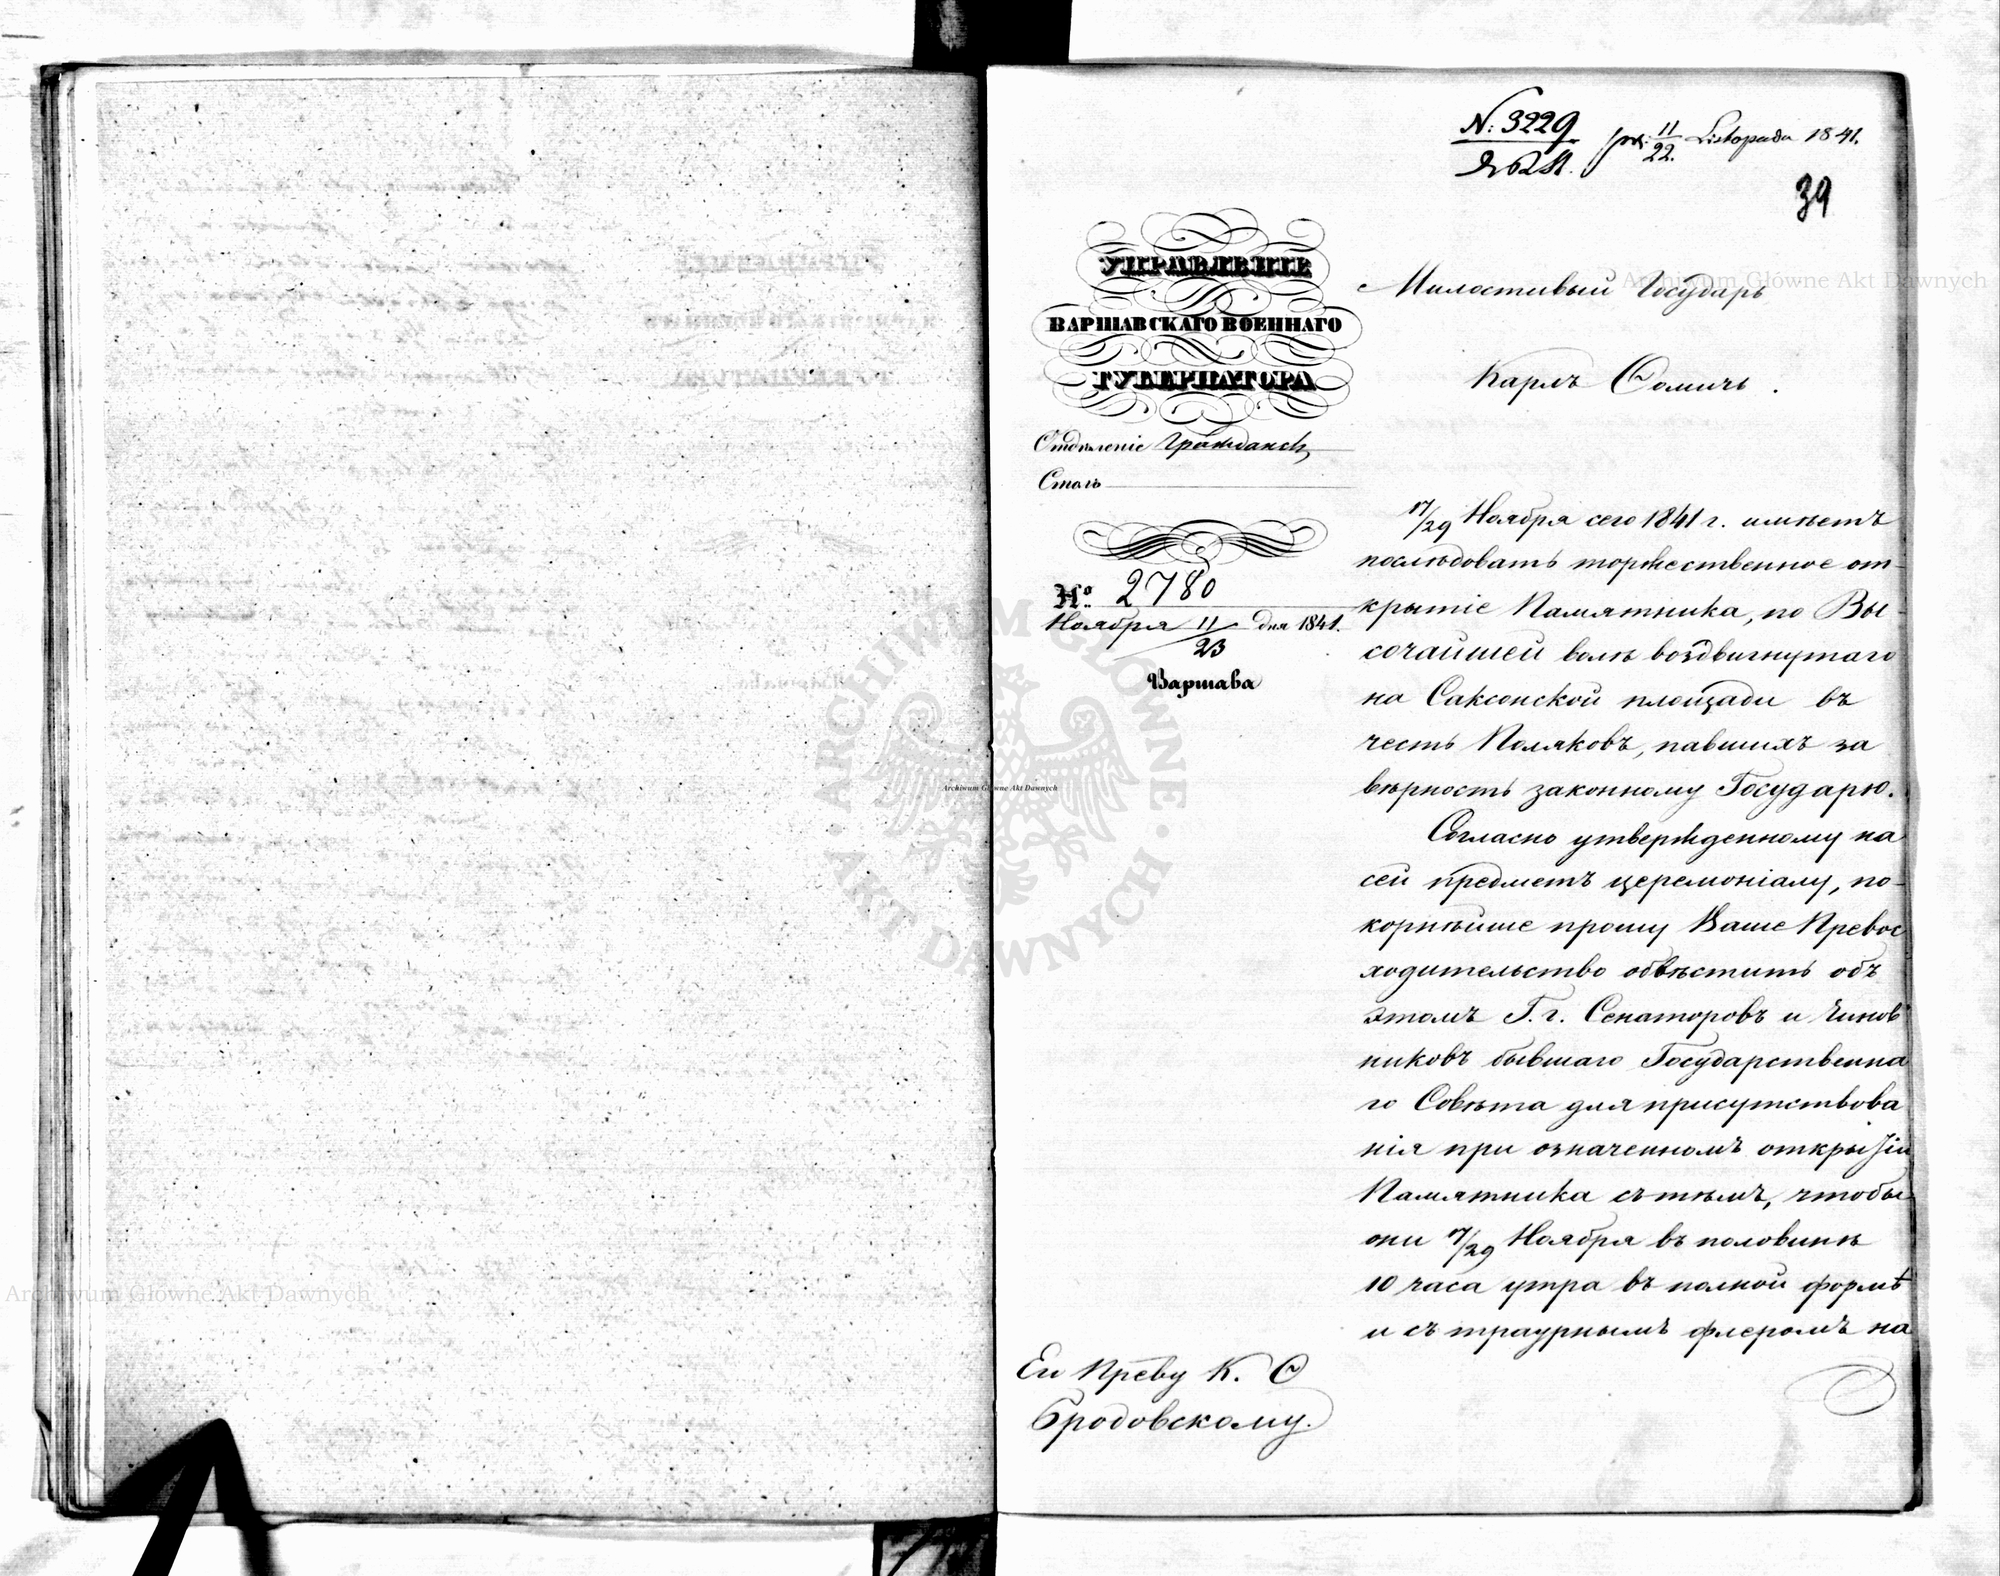 N: 3229
prz: 11/22. Listopada 1841.
39
УПРАВЛЕНІЕ
ВАРШАВСКАГО ВОЕННАГО
ГУБЕРНАТОРА
Отдѣленіе Гражданск,
Столъ
№ 2780
Ноября 11/23 дня 1841.
Варшава
Милостивый Государь
Карлъ Ѳомичь.
17/29 Ноября сего 1841 г. имѣетъ
послѣдовать торжественное от-
крытіе Памятника, по Вы-
сочайшей волѣ воздвигнутаго
на Саксонской площади въ
честь Поляковъ, павшихъ за
вѣрность законному Государю.
Согласно утвержденному на
сей предметъ церемоніалу, по-
корнѣйше прошу Ваше Превос
ходительство обвѣстить объ
этомъ Г. г. Сенаторовъ и Чинов
никовъ бывшаго Государственна
го Совѣта для присутствова
нія при означенномъ открытіи
Памятника съ тѣмъ, чтобы
они 17/29 Ноября въ половинѣ
10 часа утра въ полной формѣ
и съ траурнымъ флеромъ на
Ег Прсву К. Ѳ
Бродовскому.
Archiwum Główne Akt Dawnych
ARCHIWUM GŁÓWNE
AKT DAWNYCH
Archiwum Główne Akt Dawnych
Archiwum Główne Akt Dawnych